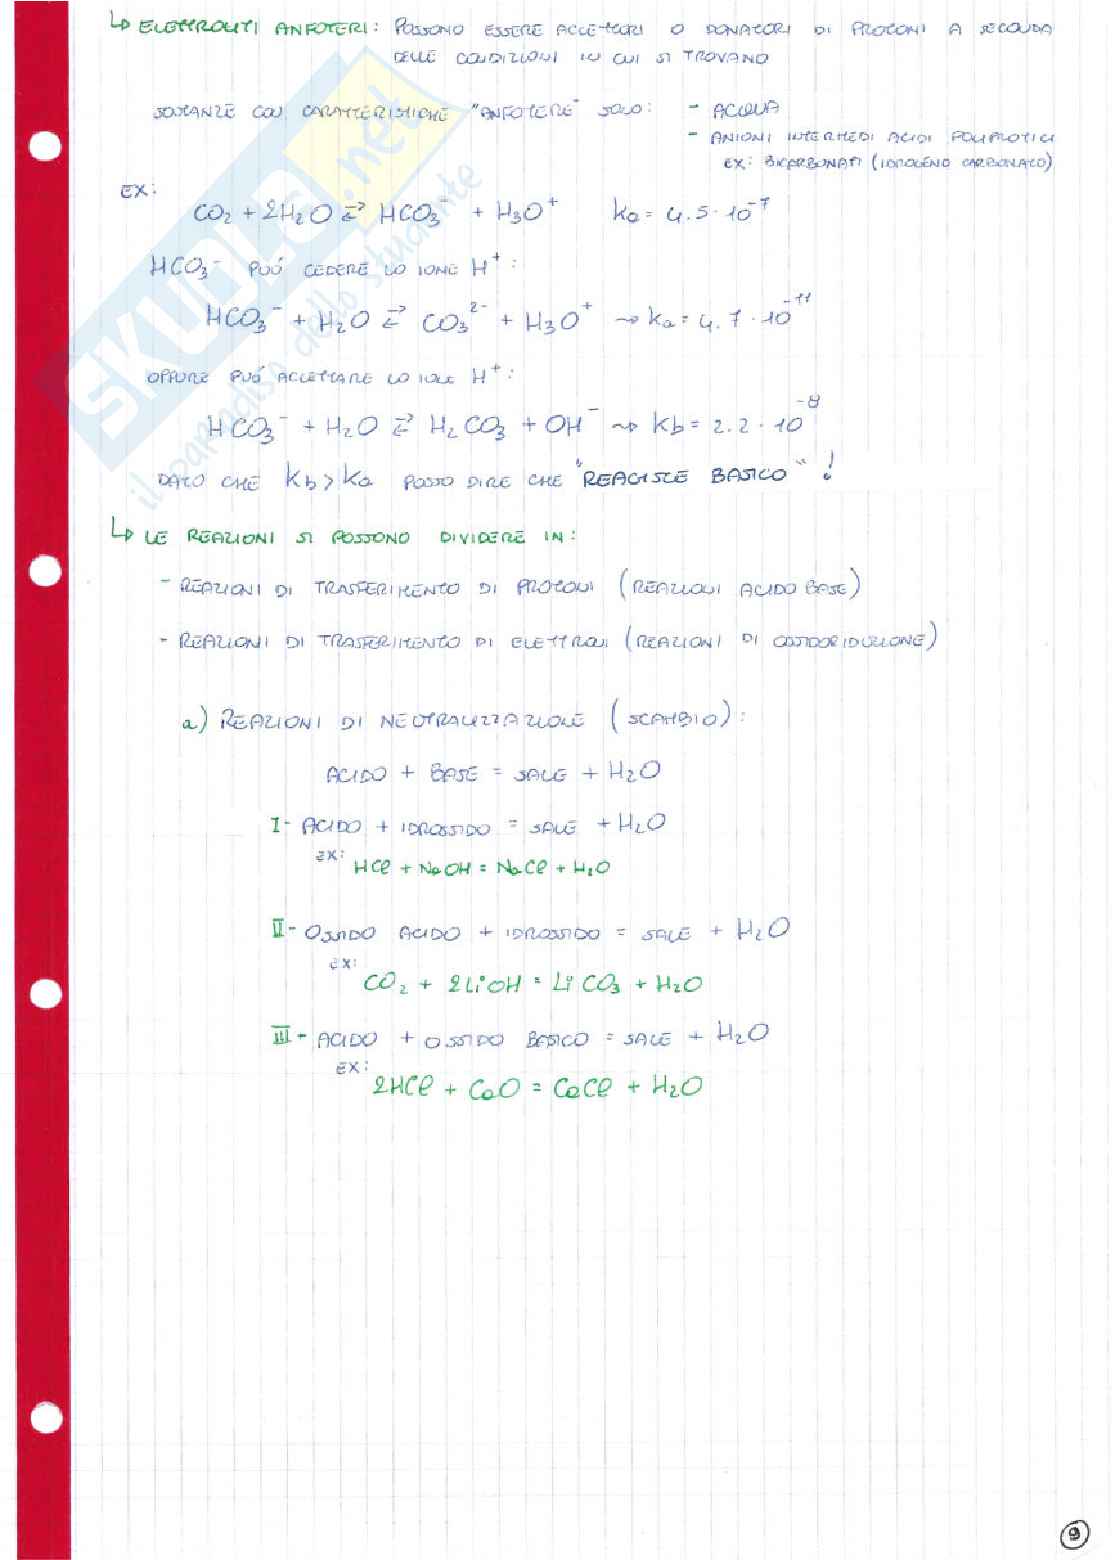 ↳ ELETTROLITI ANFOTERI: POSSONO ESSERE ACCETTORI O DONATORI DI PROTONI A SECONDA
DELLE CONDIZIONI IN CUI SI TROVANO
SOSTANZE CON CARATTERISTICHE "ANFOTERE" SOLO: - ACQUA
- ANIONI INTERMEDI ACIDI POLIPROTICI
EX: BICARBONATI (IDROGENO CARBONATO)
EX:
CO₂ + 2H₂O ⇄ HCO₃⁻ + H₃O⁺ Ka = 4.5·10⁻⁷
HCO₃⁻ PUÓ CEDERE LO IONE H⁺:
HCO₃⁻ + H₂O ⇄ CO₃²⁻ + H₃O⁺ → Ka = 4.7·10⁻¹¹
OPPURE PUÓ ACCETTARE LO IONE H⁺:
HCO₃⁻ + H₂O ⇄ H₂CO₃ + OH⁻ → Kb = 2.2·10⁻⁸
DATO CHE Kb > Ka POSSO DIRE CHE "REAGISCE BASICO"!
↳ LE REAZIONI SI POSSONO DIVIDERE IN:
- REAZIONI DI TRASFERIMENTO DI PROTONI (REAZIONI ACIDO BASE)
- REAZIONI DI TRASFERIMENTO DI ELETTRONI (REAZIONI DI OSSIDORIDUZIONE)
a) REAZIONI DI NEUTRALIZZAZIONE (SCAMBIO):
ACIDO + BASE = SALE + H₂O
I- ACIDO + IDROSSIDO = SALE + H₂O
EX:
HCl + NaOH = NaCl + H₂O
II- OSSIDO ACIDO + IDROSSIDO = SALE + H₂O
EX:
CO₂ + 2LiOH = LiCO₃ + H₂O
III- ACIDO + OSSIDO BASICO = SALE + H₂O
EX:
2HCl + CaO = CaCl + H₂O
9
SKUOLA.net
il paradiso dello studente